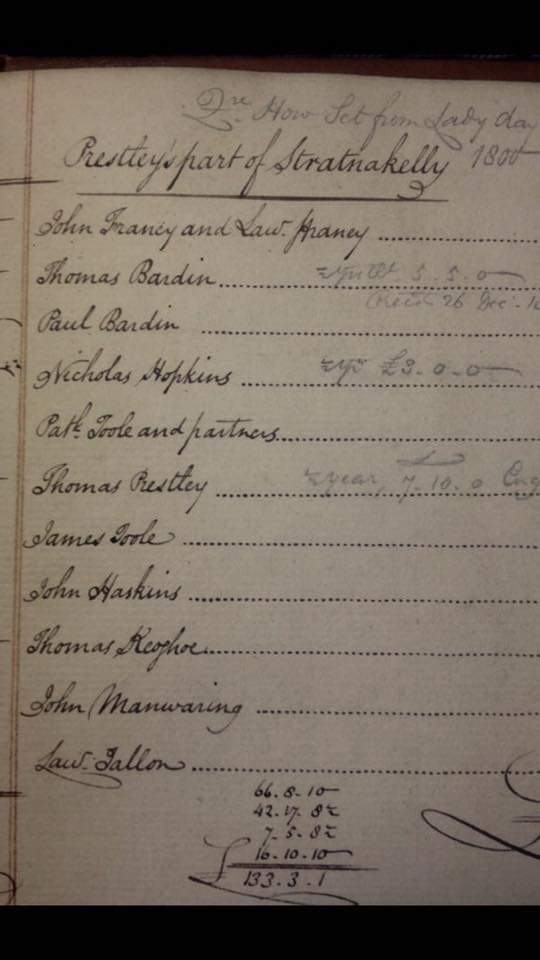 How Set from Lady day
Prestley's part of Stratnakelly 1800
John Franey and Lawᵉ. Franey
Thomas Bardin 5. 5. 0
26 Decʳ.
Paul Bardin
Nicholas Hopkins £3. 0. 0
Patᵏ Toole and partners
Thomas Prestley year 7. 10. 0
James Toole
John Haskins
Thomas Keoghoe
John Manwaring
Lawᵉ. Tallon
66. 8. 10
42. 17. 8½
7. 5. 8½
16. 10. 10
£133. 3. 1